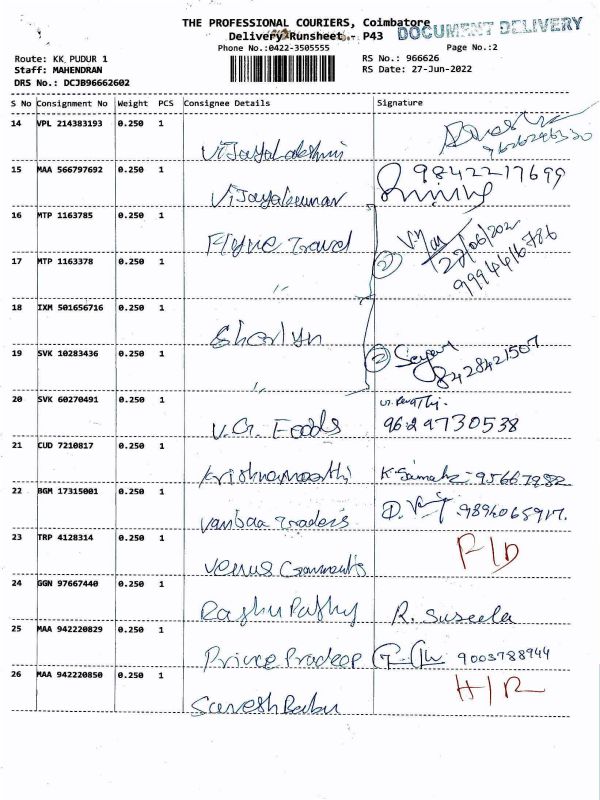 THE PROFESSIONAL COURIERS, Coimbatore
DOCUMENT DELIVERY
Delivery Runsheet - P43
Phone No.:0422-3505555
Page No.:2
Route: KK PUDUR 1
RS No.: 966626
Staff: MAHENDRAN
RS Date: 27-Jun-2022
DRS No.: DCJB96662602
S No Consignment No Weight PCS Consignee Details Signature
14 VPL 214383193 0.250 1
Vijayalakshmi
15 MAA 566797692 0.250 1 9842217699
Vijayakumar
16 MTP 1163785 0.250 1
Flyne Travel
27/06/202
17 MTP 1163378 0.250 1 2
9994416786
18 IXM 501656716 0.250 1
Sharlyn
19 SVK 10283436 0.250 1 2
8428421507
20 SVK 60270491 0.250 1
V.G. Foods 9629730538
21 CUD 7210817 0.250 1
Krishnamoorthi
22 BGM 17315001 0.250 1
Traders
23 TRP 4128314 0.250 1 F/D
Venus Garments
24 GGN 97667440 0.250 1
Raghu Pathy R. Suseela
25 MAA 942220829 0.250 1
Prince Pradeep 9003788944
26 MAA 942220850 0.250 1 H/R
Suresh Babu